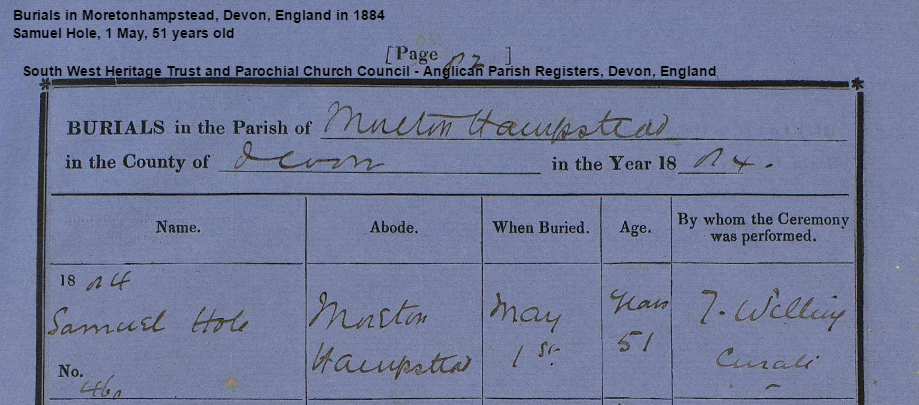 Burials in Moretonhampstead, Devon, England in 1884
Samuel Hole, 1 May, 51 years old
[Page 82 ]
South West Heritage Trust and Parochial Church Council - Anglican Parish Registers, Devon, England
BURIALS in the Parish of Moreton Hampstead
in the County of Devon in the Year 1884.
Name. Abode. When Buried. Age. By whom the Ceremony was performed.
1884
Samuel Hole Moreton Hampstead May 1st Years 51 T. Curate
No. 460